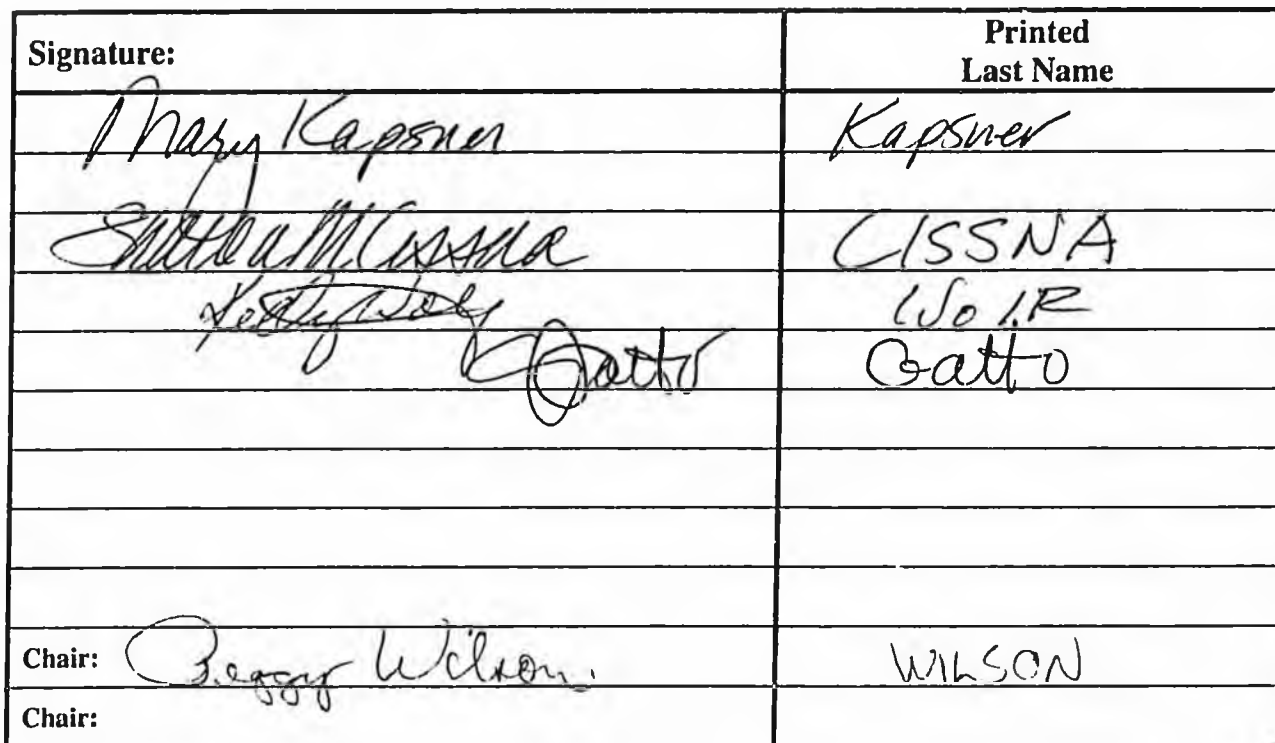 Signature: Printed Last Name
Mary Kapsner Kapsner
M Cissna CISSNA
Gatto Gatto
Chair: Peggy Wilson. WILSON
Chair: